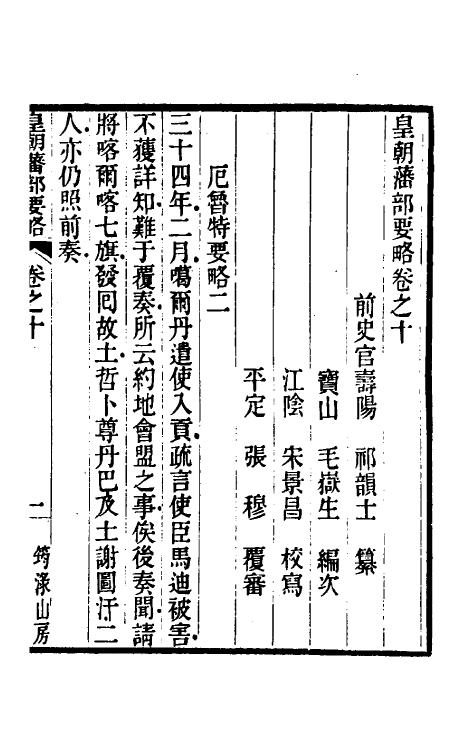 皇朝藩部要略卷之十
前史官壽陽 祁韻士 纂
寶山 毛嶽生 編次
江陰 宋景昌 校寫
平定 張穆 覆審
厄魯特要略二
三十四年二月噶爾丹遣使入貢疏言使臣馬迪被害
不獲詳知難于覆奏所云約地會盟之事俟後奏聞請
將喀爾喀七旗發囘故土哲卜尊丹巴及土謝圖汗二
人亦仍照前奏
皇朝藩部要略 卷之十 一 筠淥山房